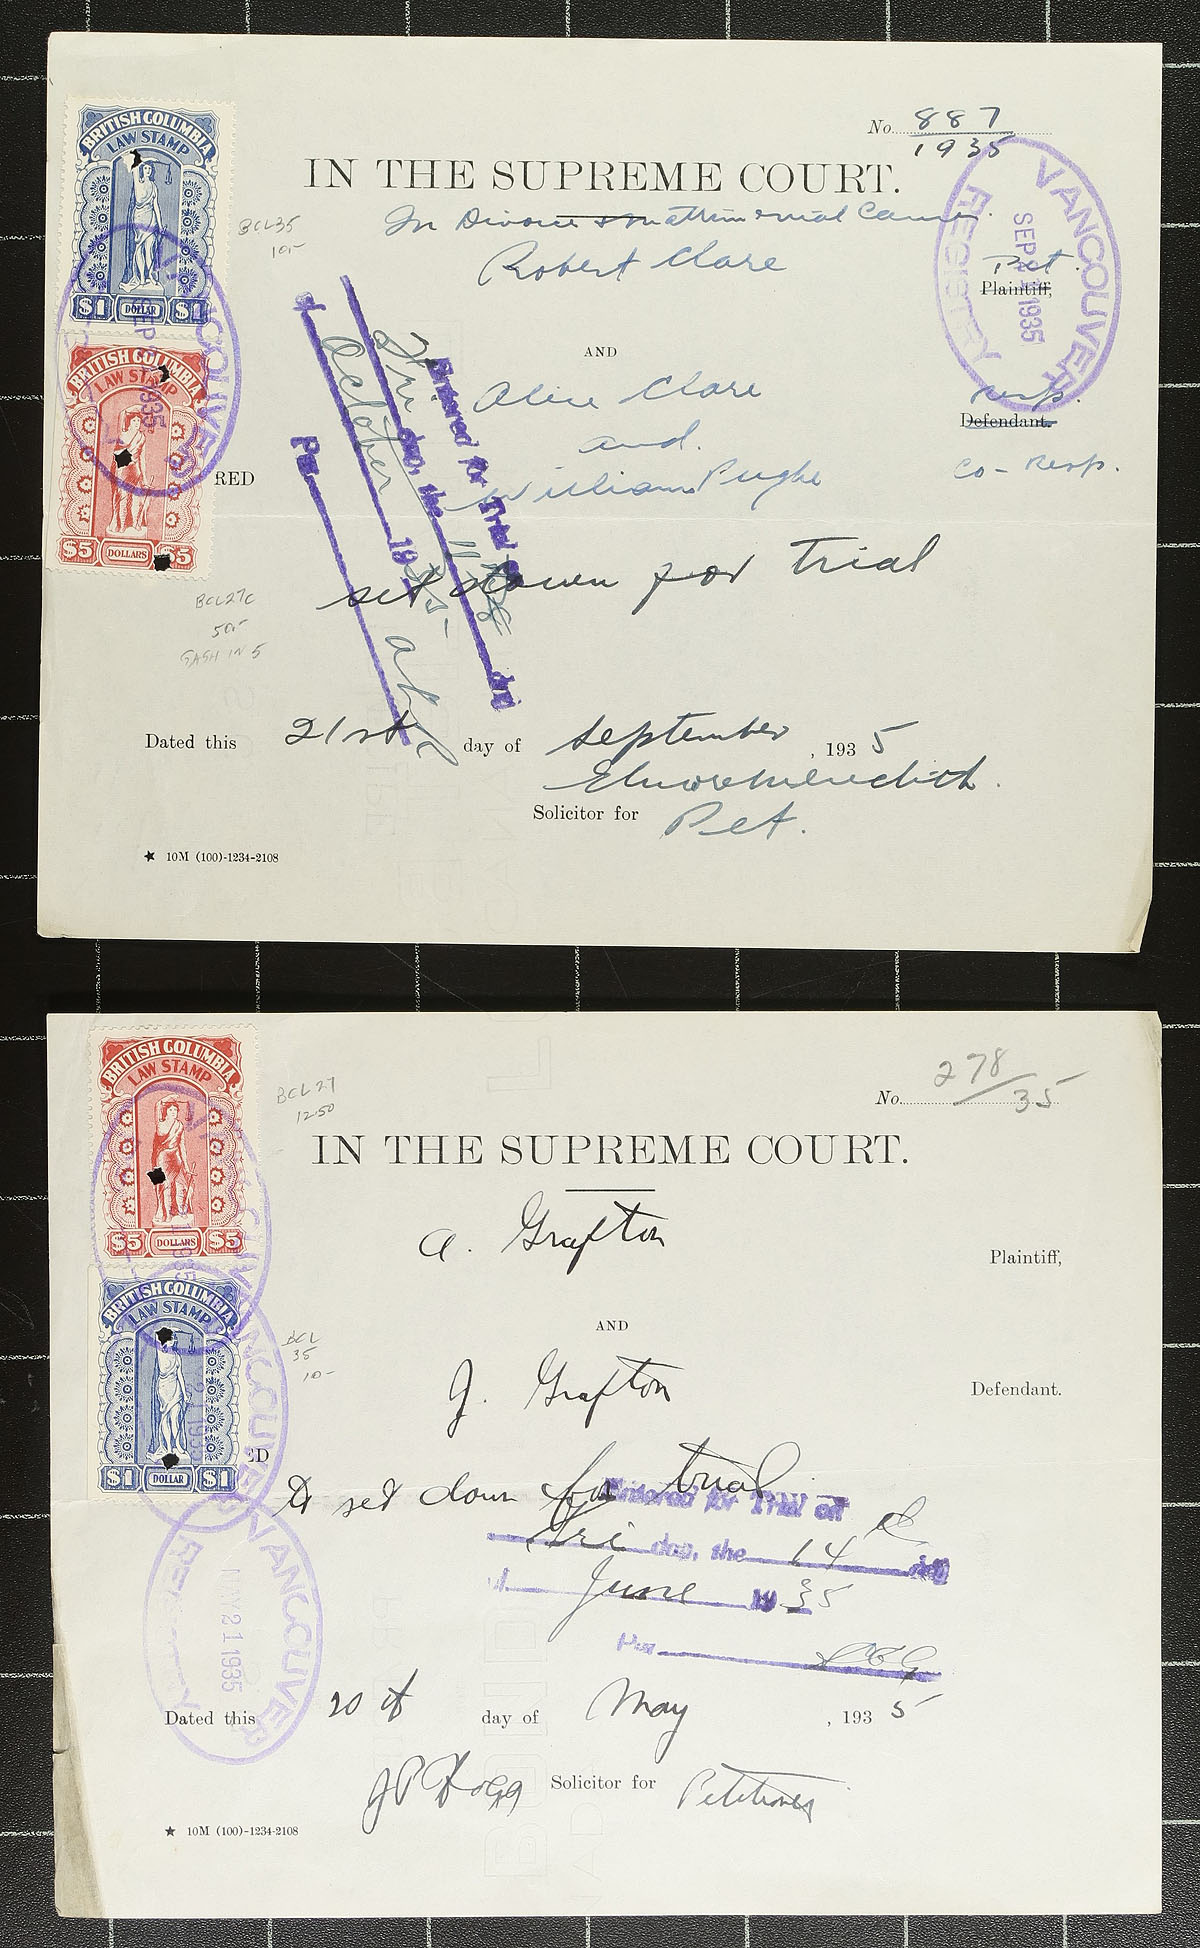 No. 887
1935
BRITISH COLUMBIA
LAW STAMP
$1 DOLLAR $1
BCL35
10.-
IN THE SUPREME COURT.
In Divorce & Matrimonial Causes.
Robert Clare
Pet.
Plaintiff,
VANCOUVER
SEP 21 1935
REGISTRY
VANCOUVER
SEP 1935
AND
BRITISH COLUMBIA
LAW STAMP
$5 DOLLARS $5
Alice Clare
and.
William Pughe
Resp.
Defendant.
Co-Resp.
RED
Entered for Trial on
Fri day, the 11th day
of October 1935-
Per
set down for trial
BCL27c
50.-
GASH IN 5
Dated this 21st day of September, 1935
Elmore Meredith.
Solicitor for Pet.
★ 10M (100)-1234-2108
No. 278/35
BRITISH COLUMBIA
LAW STAMP
$5 DOLLARS $5
BCL27
12.50
IN THE SUPREME COURT.
A. Grafton
Plaintiff,
AND
BRITISH COLUMBIA
LAW STAMP
$1 DOLLAR $1
BCL
35
10-
J. Grafton
Defendant.
ED
To set down for trial
Entered for Trial on
Fri day, the 14 day
of June 1935
Per
VANCOUVER
MY 21 1935
REGISTRY
Dated this 20th day of May, 1935
Solicitor for Petitioner
★ 10M (100)-1234-2108